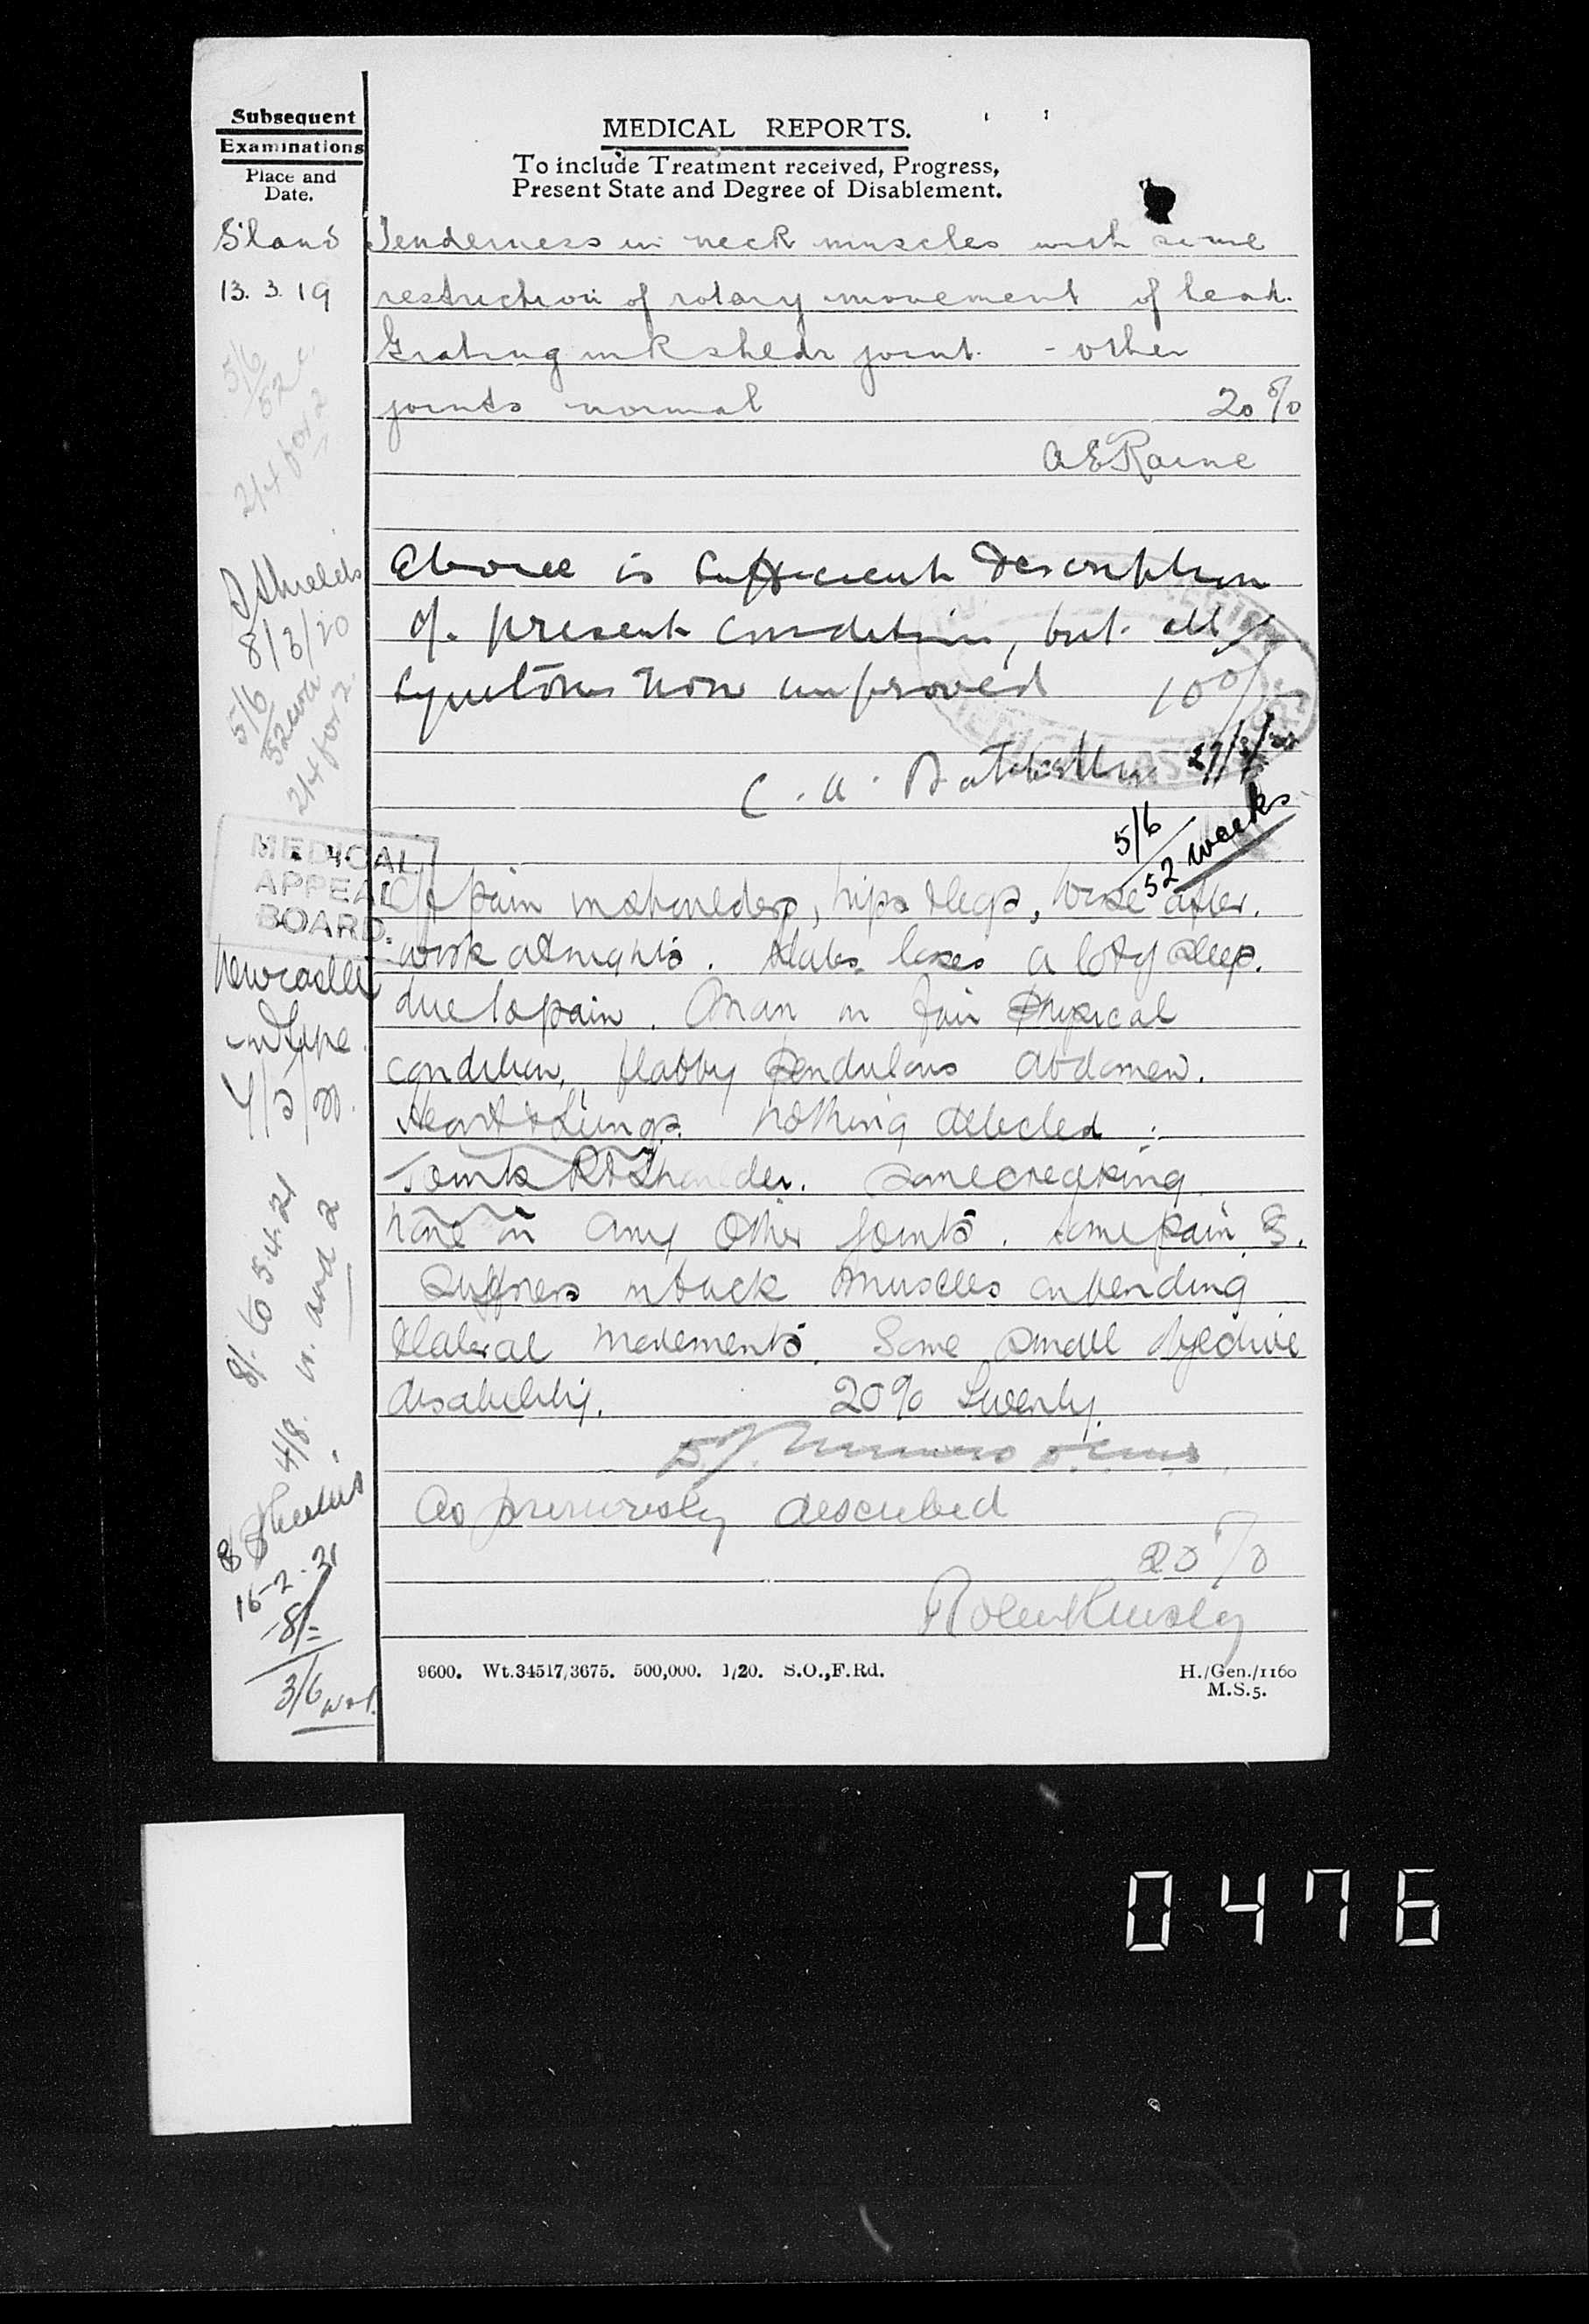 Subsequent
Examinations
Place and
Date.
MEDICAL REPORTS.
To include Treatment received, Progress,
Present State and Degree of Disablement.
S'land
13.3.19
Tenderness in neck muscles with some
restriction of rotary movement of head.
Grating in R shldr joint. - other
joints normal 20%
A E Raine
5/6
52
2/4 for 2
S Shields
8/3/20
5/6
52
2/4 for 2
Above is sufficient description
of present condition, but all
symptoms now improved 10%
C. A.
5/6
52 weeks
MEDICAL
APPEAL
BOARD.
Newcastle
on Tyne
C/o pain in shoulders, hips & legs, worse after
work at nights. States loses a lot of sleep.
due to pain. Man in fair physical
condition, flabby pendulous abdomen.
Heart & Lungs. nothing detected.
Joints Rt Shoulder. some creaking
none in any other joints. some pain &
stiffness in back muscles on bending
& lateral movements. Some small objective
disability. 20% Twenty.
8/- to 5.4.21
4/8
S Shields
16-2-21
8/=
3/6
As previously described
20%
9600. Wt.34517/3675. 500,000. 1/20. S.O.,F.Rd.
H./Gen./1160
M.S.5.
0476